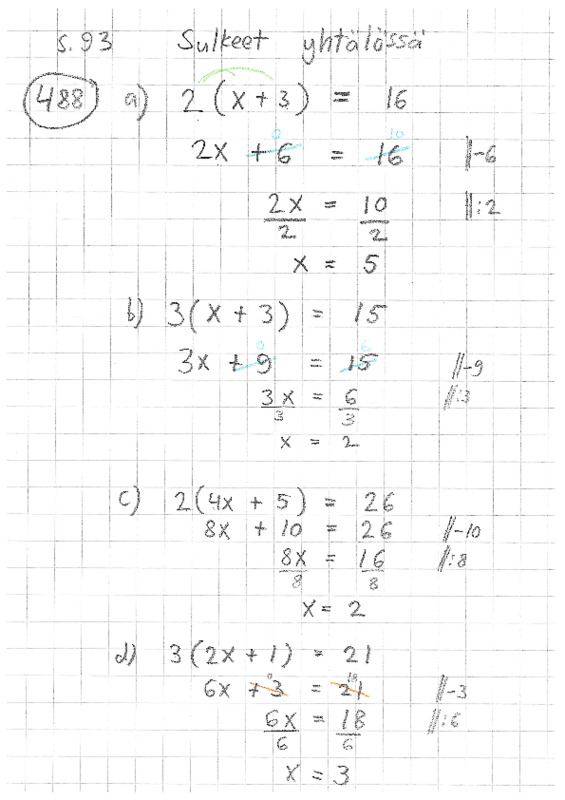 s. 93 Sulkeet yhtälössä
488 a) 2(x + 3) = 16
0 10
2x + 6 = 16 ‖-6
2x/2 = 10/2 ‖:2
x = 5
b) 3(x + 3) = 15
0 6
3x + 9 = 15 ‖-9
3x/3 = 6/3 ‖:3
x = 2
c) 2(4x + 5) = 26
8x + 10 = 26 ‖-10
8x/8 = 16/8 ‖:8
x = 2
d) 3(2x + 1) = 21
0 18
6x + 3 = 21 ‖-3
6x/6 = 18/6 ‖:6
x = 3